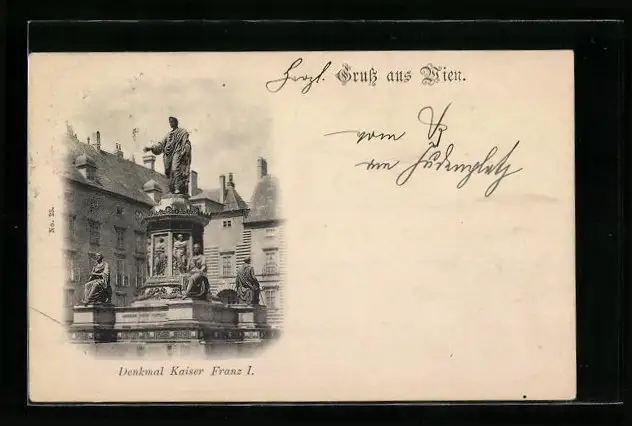 Herzl. Gruß aus Wien.
vom
am Judenplatz
No. 23.
Denkmal Kaiser Franz I.